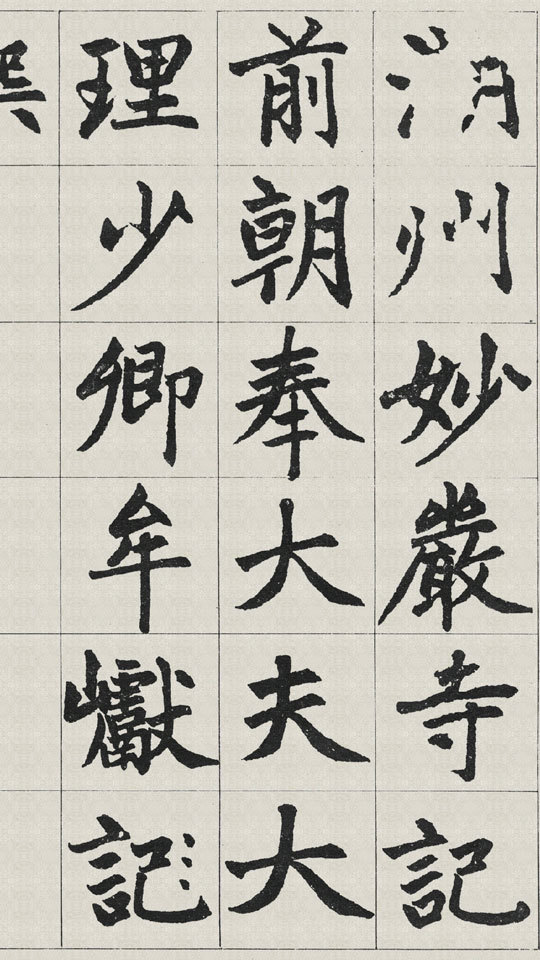 湖州妙嚴寺記
前朝奉大夫大
理少卿牟巘記